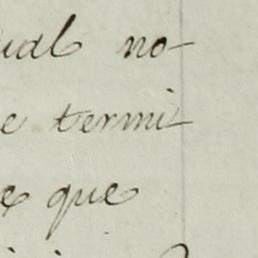 ual no-
e termi-
e que